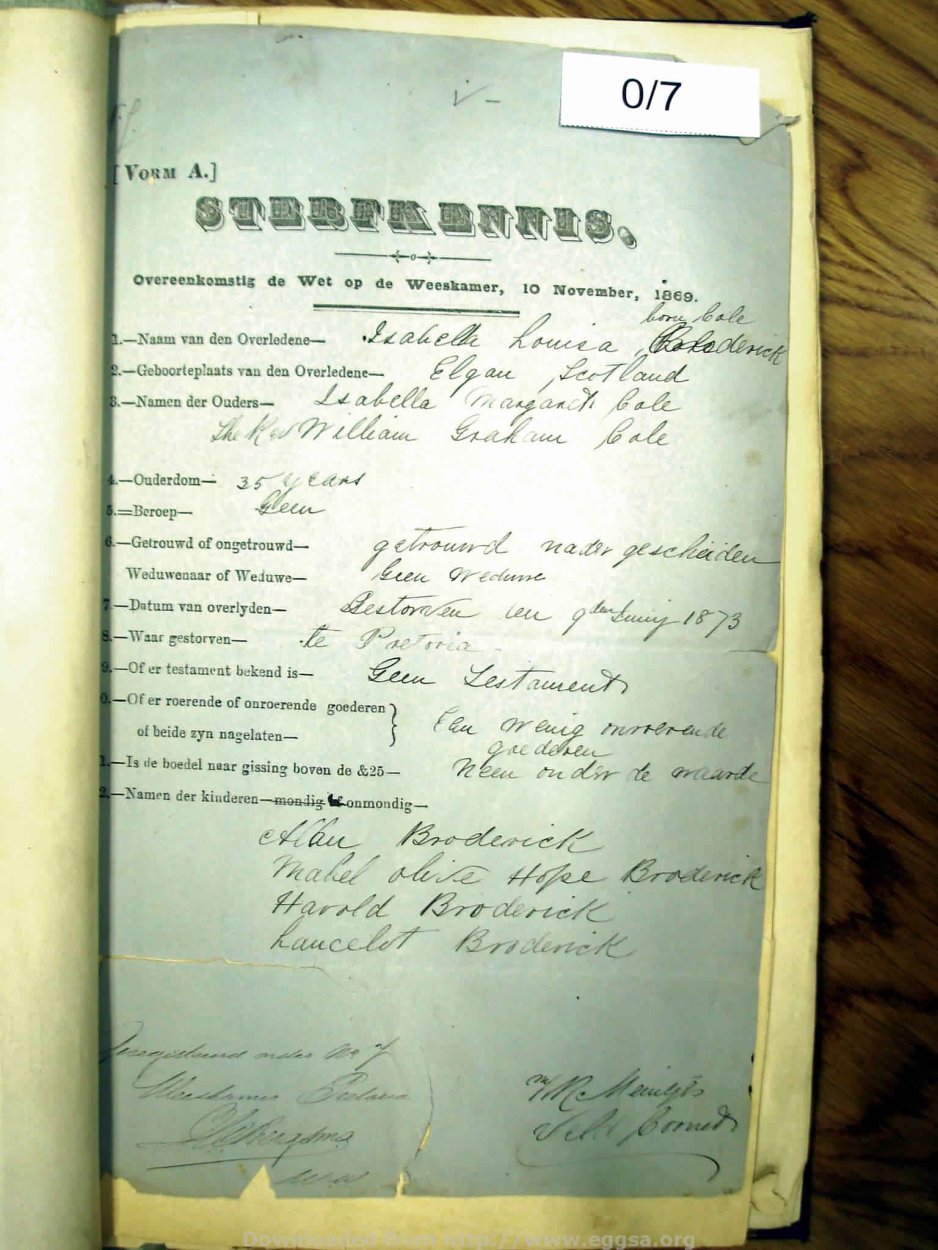 0/7
[VORM A.]
STERFKENNIS.
Overeenkomstig de Wet op de Weeskamer, 10 November, 1869.
born Cole
1.—Naam van den Overledene— Isabella Louisa Broderick
2.—Geboorteplaats van den Overledene— Elgan, Scotland
3.—Namen der Ouders— Isabella Margaret Cole
The Rev William Graham Cole
4.—Ouderdom— 35 years
5.—Beroep— Geen
6.—Getrouwd of ongetrouwd— getrouwd nader gescheiden
Weduwenaar of Weduwe— Geen Weduwe
7.—Datum van overlyden— Gestorven den 9den Juny 1873
8.—Waar gestorven— te Pretoria
9.—Of er testament bekend is— Geen Testament
0.—Of er roerende of onroerende goederen
of beide zyn nagelaten— Een wenig onroerende
goederen
1.—Is de boedel naar gissing boven de £25— Neen onder de waarde
2.—Namen der kinderen—mondig of onmondig—
Allan Broderick
Mabel Olive Hope Broderick
Harold Broderick
Lancelot Broderick
Geregistreerd onder No 7
Weeskamer Pretoria
Meintjes
Veld Cornet
Downloaded from http://www.eggsa.org